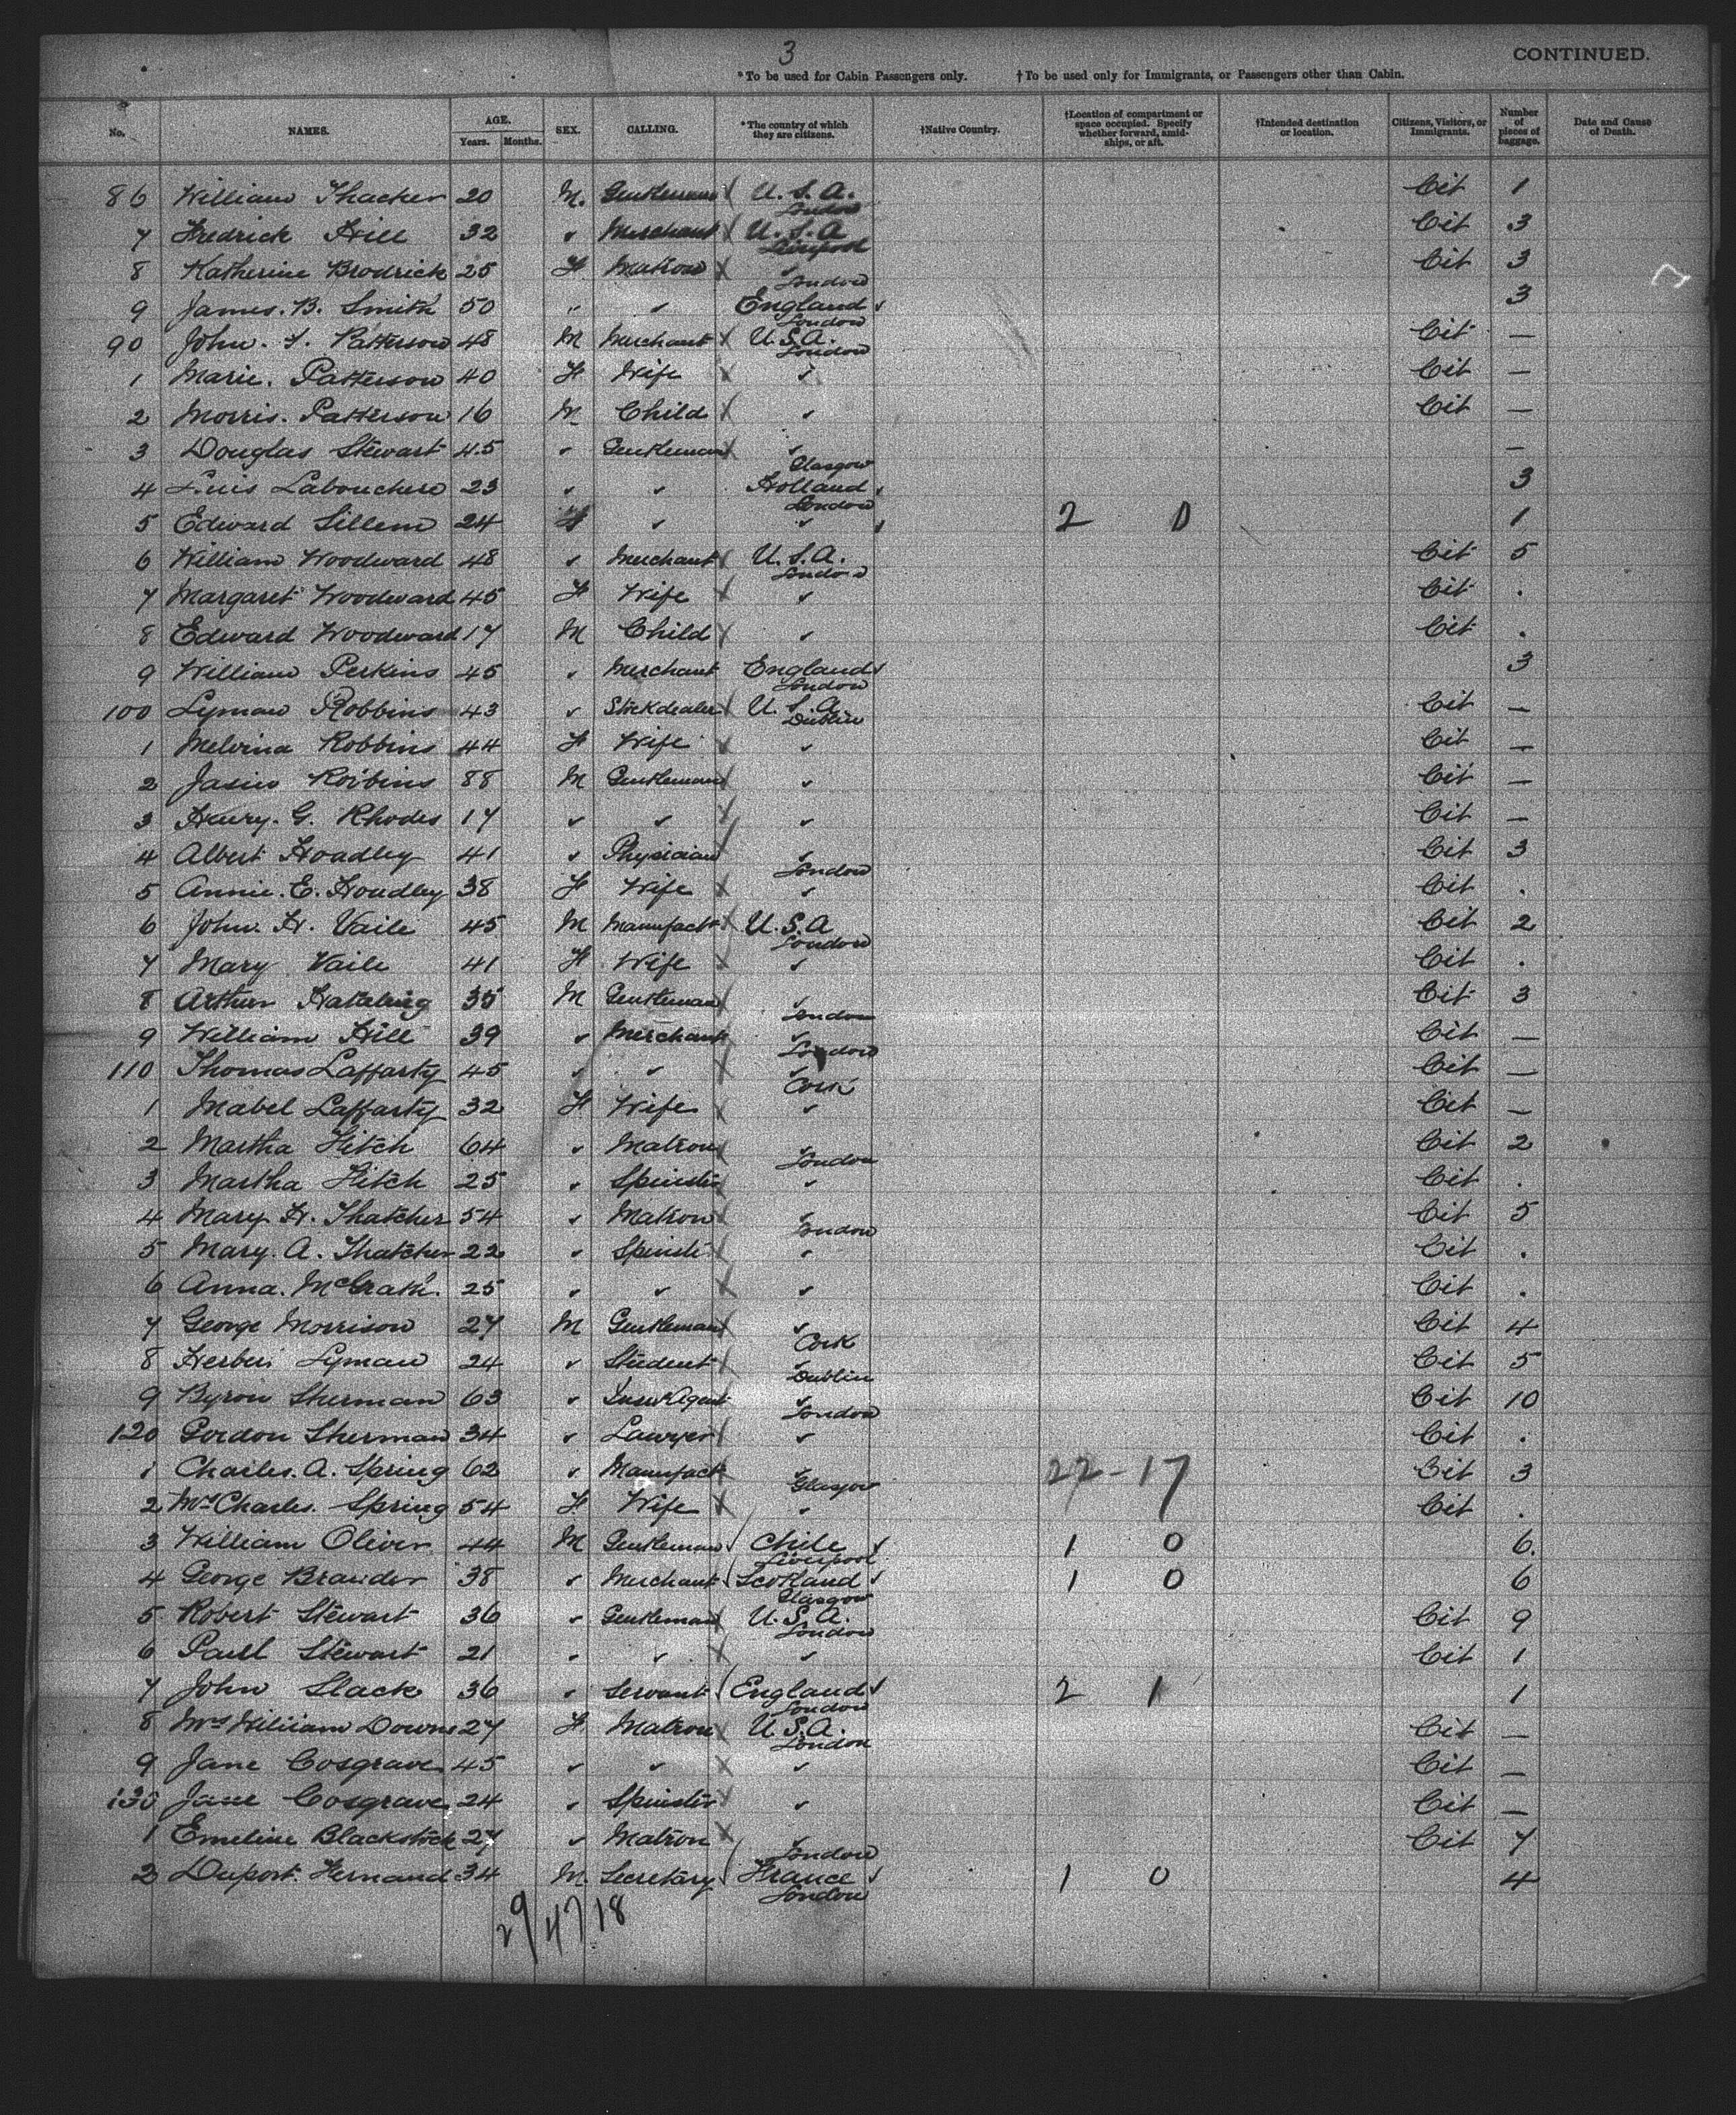 3
CONTINUED.
*To be used for Cabin Passengers only. †To be used only for Immigrants, or Passengers other than Cabin.
No. NAMES. AGE. Years. Months. SEX. CALLING. *The country of which they are citizens. †Native Country. †Location of compartment or space occupied. Specify whether forward, amidships, or aft. †Intended destination or location. Citizens, Visitors, or Immigrants. Number of pieces of baggage. Date and Cause of Death.
86 William Thacker 20 M. Gentleman U.S.A. London Cit 1
7 Fredrick Hill 32 " Merchant U.S.A Liverpool Cit 3
8 Katherine Brodrick 25 F Matron " London Cit 3
9 James. B. Smith 50 " " England London 3
90 John. F. Patterson 48 M Merchant U.S.A. London Cit —
1 Marie. Patterson 40 F Wife " Cit —
2 Morris. Patterson 16 M Child " Cit —
3 Douglas Stewart 45 " Gentleman " Glasgow —
4 Labouchere 23 " " Holland London 3
5 Edward Sillem 24 " " 2 0 1
6 William Woodward 48 " Merchant U.S.A. London Cit 5
7 Margaret Woodward 45 F Wife " Cit .
8 Edward Woodward 17 M Child " Cit .
9 William Perkins 45 " Merchant England London 3
100 Lyman Robbins 43 " Stockdealer U.S.A Dublin Cit —
1 Melvina Robbins 44 F Wife " Cit —
2 Robbins 88 M Gentleman " Cit —
3 Henry. G. Rhodes 17 " " " Cit —
4 Albert Hoadley 41 " Physician " London Cit 3
5 Annie. E. Hoadley 38 F Wife " Cit .
6 John. H. Vaile 45 M Manufact U.S.A London Cit 2
7 Mary Vaile 41 F Wife " Cit .
8 Arthur 35 M Gentleman " London Cit 3
9 William Hill 39 " Merchant " London Cit —
110 Thomas Laffarty 45 " " " Cork Cit —
1 Mabel Laffarty 32 F Wife " Cit —
2 Martha Fitch 64 " Matron " London Cit 2
3 Martha Fitch 25 " Spinster " Cit .
4 Mary H. Thatcher 54 " Matron " London Cit 5
5 Mary. A. Thatcher 22 " Spinster " Cit .
6 Anna. McGrath. 25 " " " Cit .
7 George Morrison 27 M Gentleman " Cork Cit 4
8 Herbert Lyman 24 " Student " Dublin Cit 5
9 Byron Sherman 63 " Insur Agent " London Cit 10
120 Gordon Sherman 34 " Lawyer " Cit .
1 Charles. A. Spring 62 " Manufact " Glasgow 22-17 Cit 3
2 Mrs Charles. Spring 54 F. Wife " Cit .
3 William Oliver 44 M Gentleman Chile Liverpool 1 0 6.
4 George Brander 38 " Merchant Scotland Glasgow 1 0 6
5 Robert Stewart 36 " Gentleman U.S.A. London Cit 9
6 Paull Stewart 21 " " " Cit 1
7 John Slack 36 " Servant England London 2 1 1
8 Mrs William Downs 27 F Matron U.S.A. London Cit —
9 Jane Cosgrave 45 " " " Cit —
130 Jane Cosgrave 24 " Spinster " Cit —
1 Emeline Blackstock 27 " Matron " London Cit 7
2 Duport. Fernand 34 M. Secretary France London 1 0 4
29/47/18